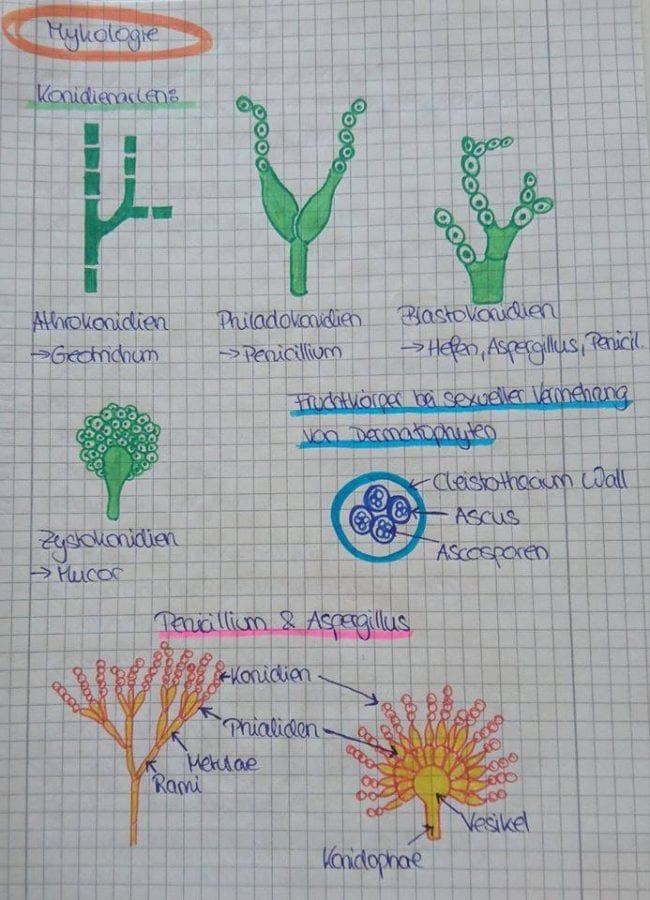 Mykologie
Konidienarten:
Athrokonidien
→Geotrichum
Philadokonidien
→Penicillium
Blastokonidien
→Hefen, Aspergillus, Penicil.
Fruchtkörper bei sexueller Vermehrung
von Dermatophyten
Cleistothacium Wall
Ascus
Ascosporen
Zystokonidien
→Mucor
Penicillium & Aspergillus
Konidien
Phialiden
Metulae
Rami
Vesikel
Konidophae